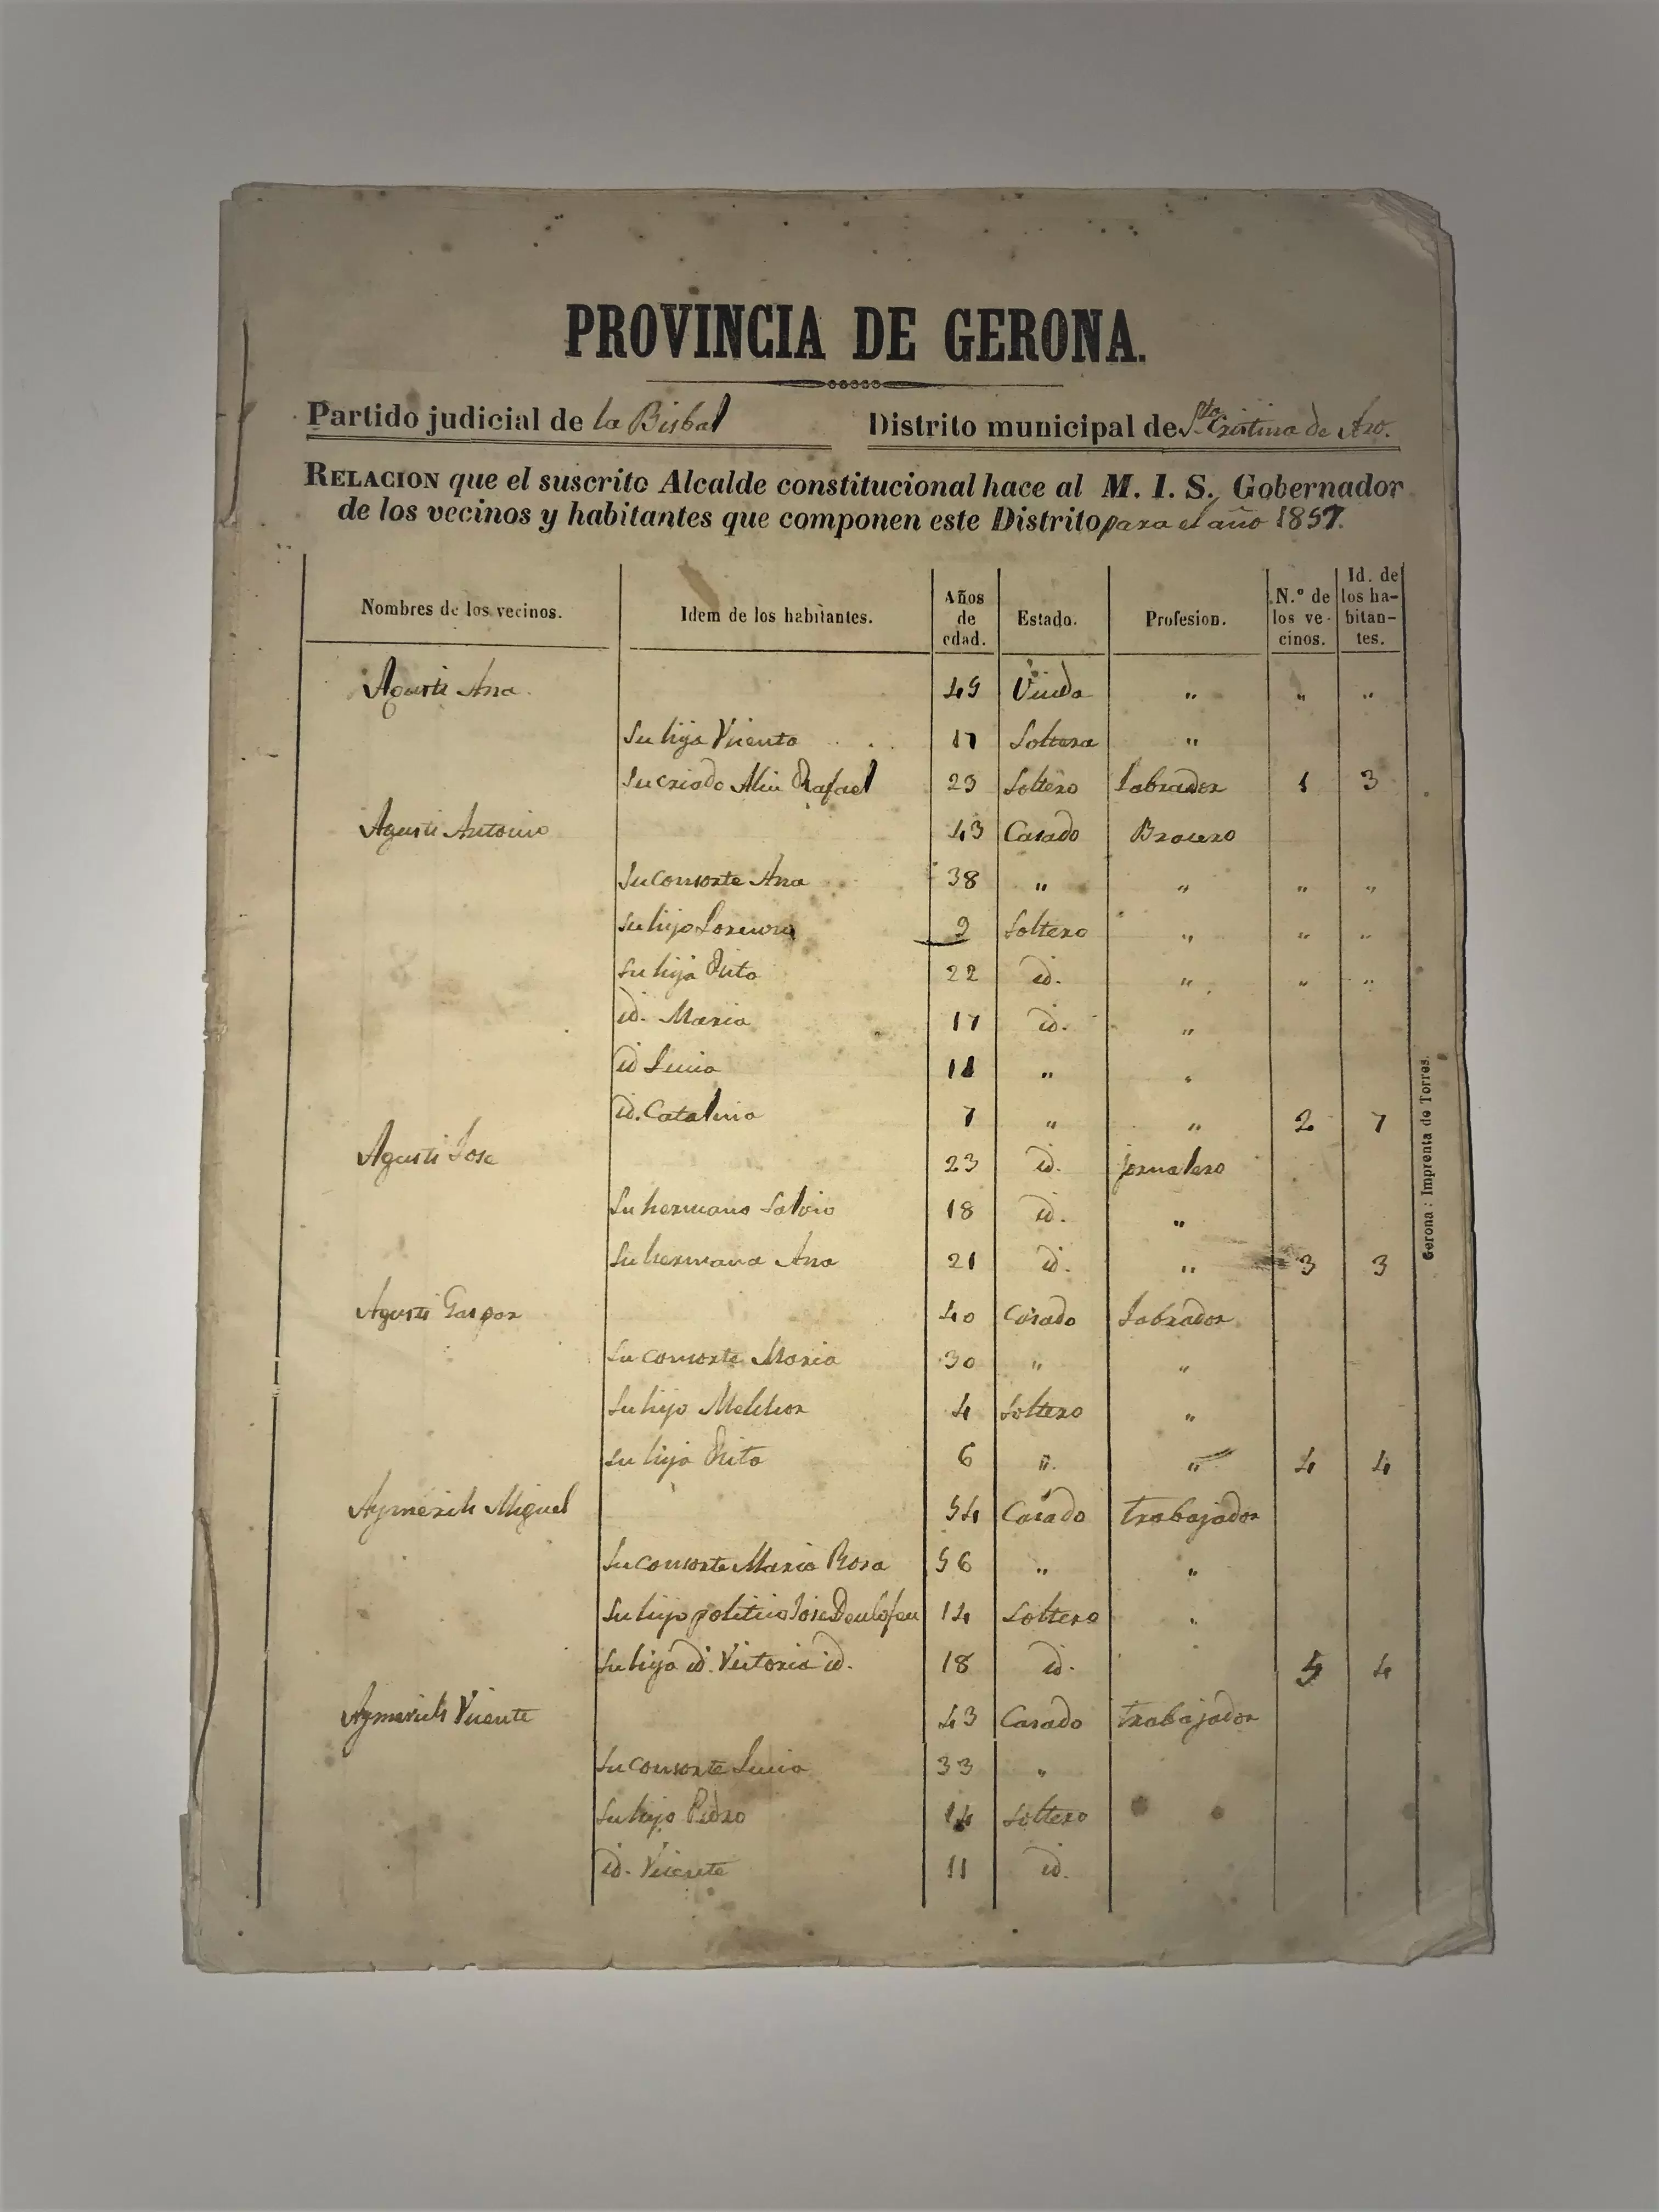 PROVINCIA DE GERONA.
Partido judicial de la Bisbal Distrito municipal de Sta Cristina de Aro.
RELACION que el suscrito Alcalde constitucional hace al M. I. S. Gobernador
de los vecinos y habitantes que componen este Distrito para el año 1857.
Nombres de los vecinos. Idem de los habitantes. Años de edad. Estado. Profesion. N.º de los ve-cinos. Id. de los ha-bitan-tes.
Agusti Ana. 49 Viuda " " "
Su hija Vicenta 17 Soltera "
Su criado Rafael 23 Soltero Labrador 1 3
Agusti Antonio 43 Casado Bracero
Su consorte Ana 38 " " " "
Su hijo 9 Soltero " " "
Su hija Rita 22 id. " " "
id. Maria 17 id. "
id Lucia 11 " "
id. Catalina 7 " " 2 7
Agusti Jose 23 id. jornalero
Su hermano Salvio 18 id. "
Su hermana Ana 21 id. " 3 3
Agusti Gaspar 40 Casado Labrador
Su consorte Maria 30 " "
Su hijo Melchor 4 Soltero "
Su hija Rita 6 " " 4 4
Aymerich Miguel 54 Casado trabajador
Su consorte Maria Rosa 56 " "
Su hijo politico Jose Deulofeu 14 Soltero "
Su hija id. Victoria id. 18 id. 5 4
Aymerich Vicente 43 Casado trabajador
Su consorte Lucia 33 "
Su hijo Pedro 14 Soltero
id. Vicente 11 id.
Gerona: Imprenta de Torres.